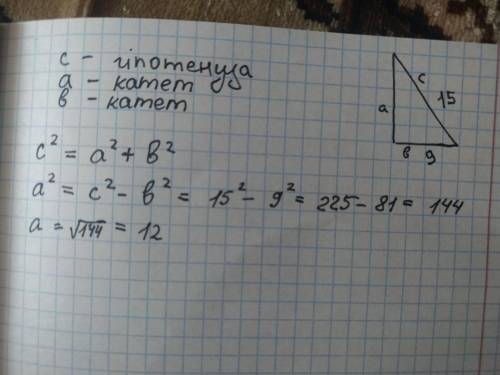 c - гіпотенуза
a - катет
в - катет
c
15
a
в 9
c² = a² + в²
a² = c² - в² = 15² - 9² = 225 - 81 = 144
a = √144 = 12